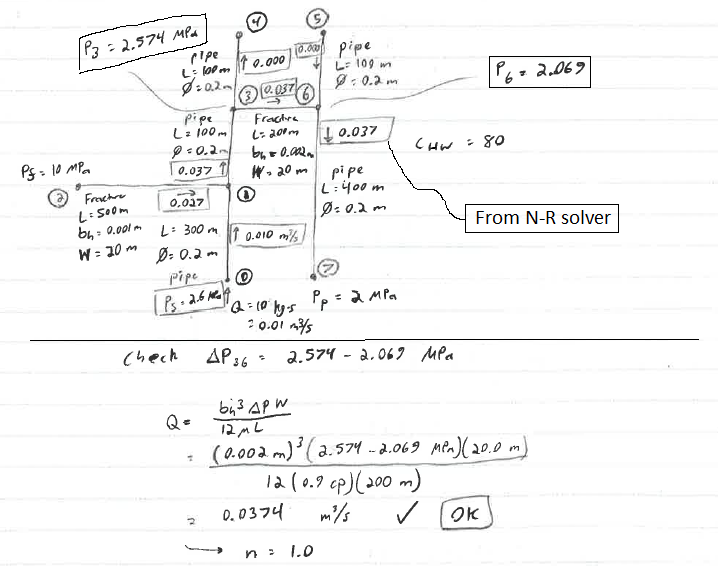 ④
⑤
P₃ = 2.574 MPa
pipe
L = 100m
Ø = 0.2m
↑ 0.000
0.000
↓
pipe
L = 100 m
Ø = 0.2 m
P₆ = 2.069
③
0.037
→
⑥
pipe
L = 100m
Ø = 0.2m
Fracture
L = 200m
bₕ = 0.002m
W = 20 m
↓ 0.037
C_HW = 80
0.037 ↑
pipe
L = 400 m
Ø = 0.2 m
From N-R solver
P₅ = 10 MPa
②
Fracture
L = 500m
bₕ = 0.001m
W = 20 m
→
0.027
①
L = 300 m
Ø = 0.2 m
pipe
↑ 0.010 m³/s
⓪
⑦
P₅ = 2.6 MPa ↑
Q = 10 kg·s
= 0.01 m³/s
Pₚ = 2 MPa
Check ΔP₃₆ = 2.574 - 2.069 MPa
Q = bₕ³ ΔP W
12 μ L
= (0.002 m)³ (2.574 - 2.069 MPa)(20.0 m)
12 (0.9 cp)(200 m)
= 0.0374 m³/s ✓ OK
→ n = 1.0